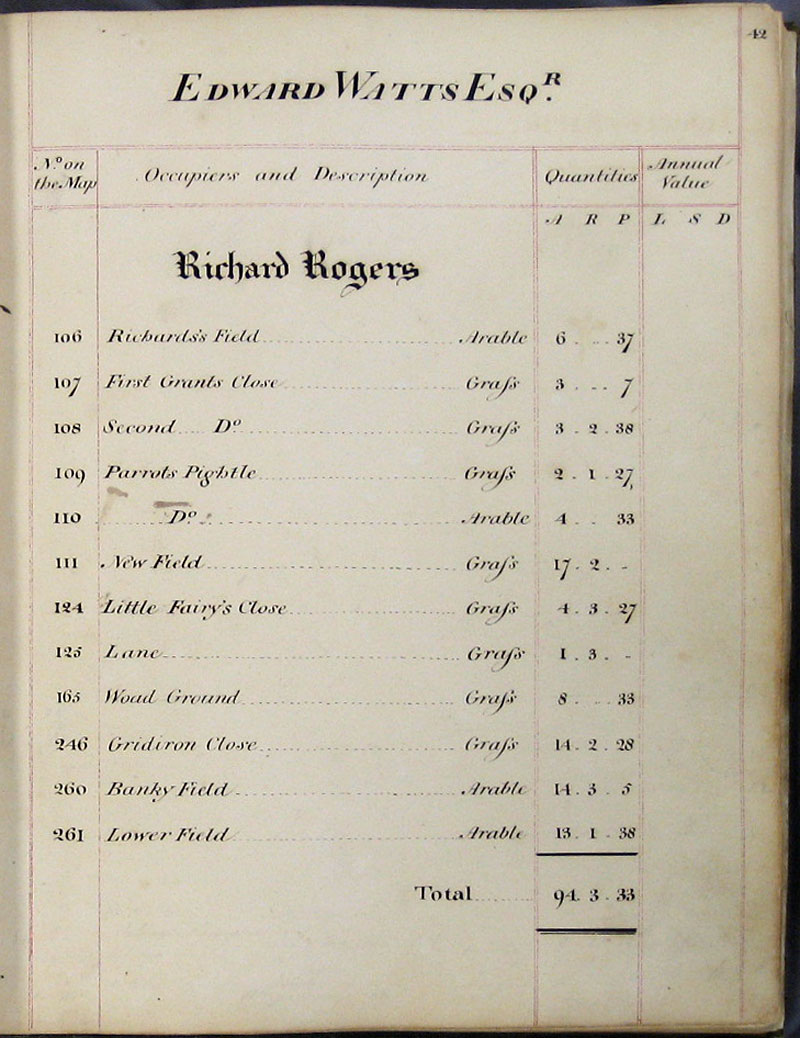 42
EDWARD WATTS ESQR.
No. on the Map Occupiers and Description Quantities Annual Value
A R P L S D
Richard Rogers
106 Richards's Field Arable 6 . . . 37
107 First Grants Close Graſs 3 . . . 7
108 Second Do. Graſs 3 . 2 . 38
109 Parrots Pightle Graſs 2 . 1 . 27
110 Do. Arable 4 . . 33
111 New Field Graſs 17 . 2 . -
124 Little Fairy's Close Graſs 4 . 3 . 27
125 Lane Graſs 1 . 3 . -
165 Woad Ground Graſs 8 . . . 33
246 Gridiron Close Graſs 14 . 2 . 28
260 Banky Field Arable 14 . 3 . 5
261 Lower Field Arable 13 . 1 . 38
Total 94 . 3 . 33